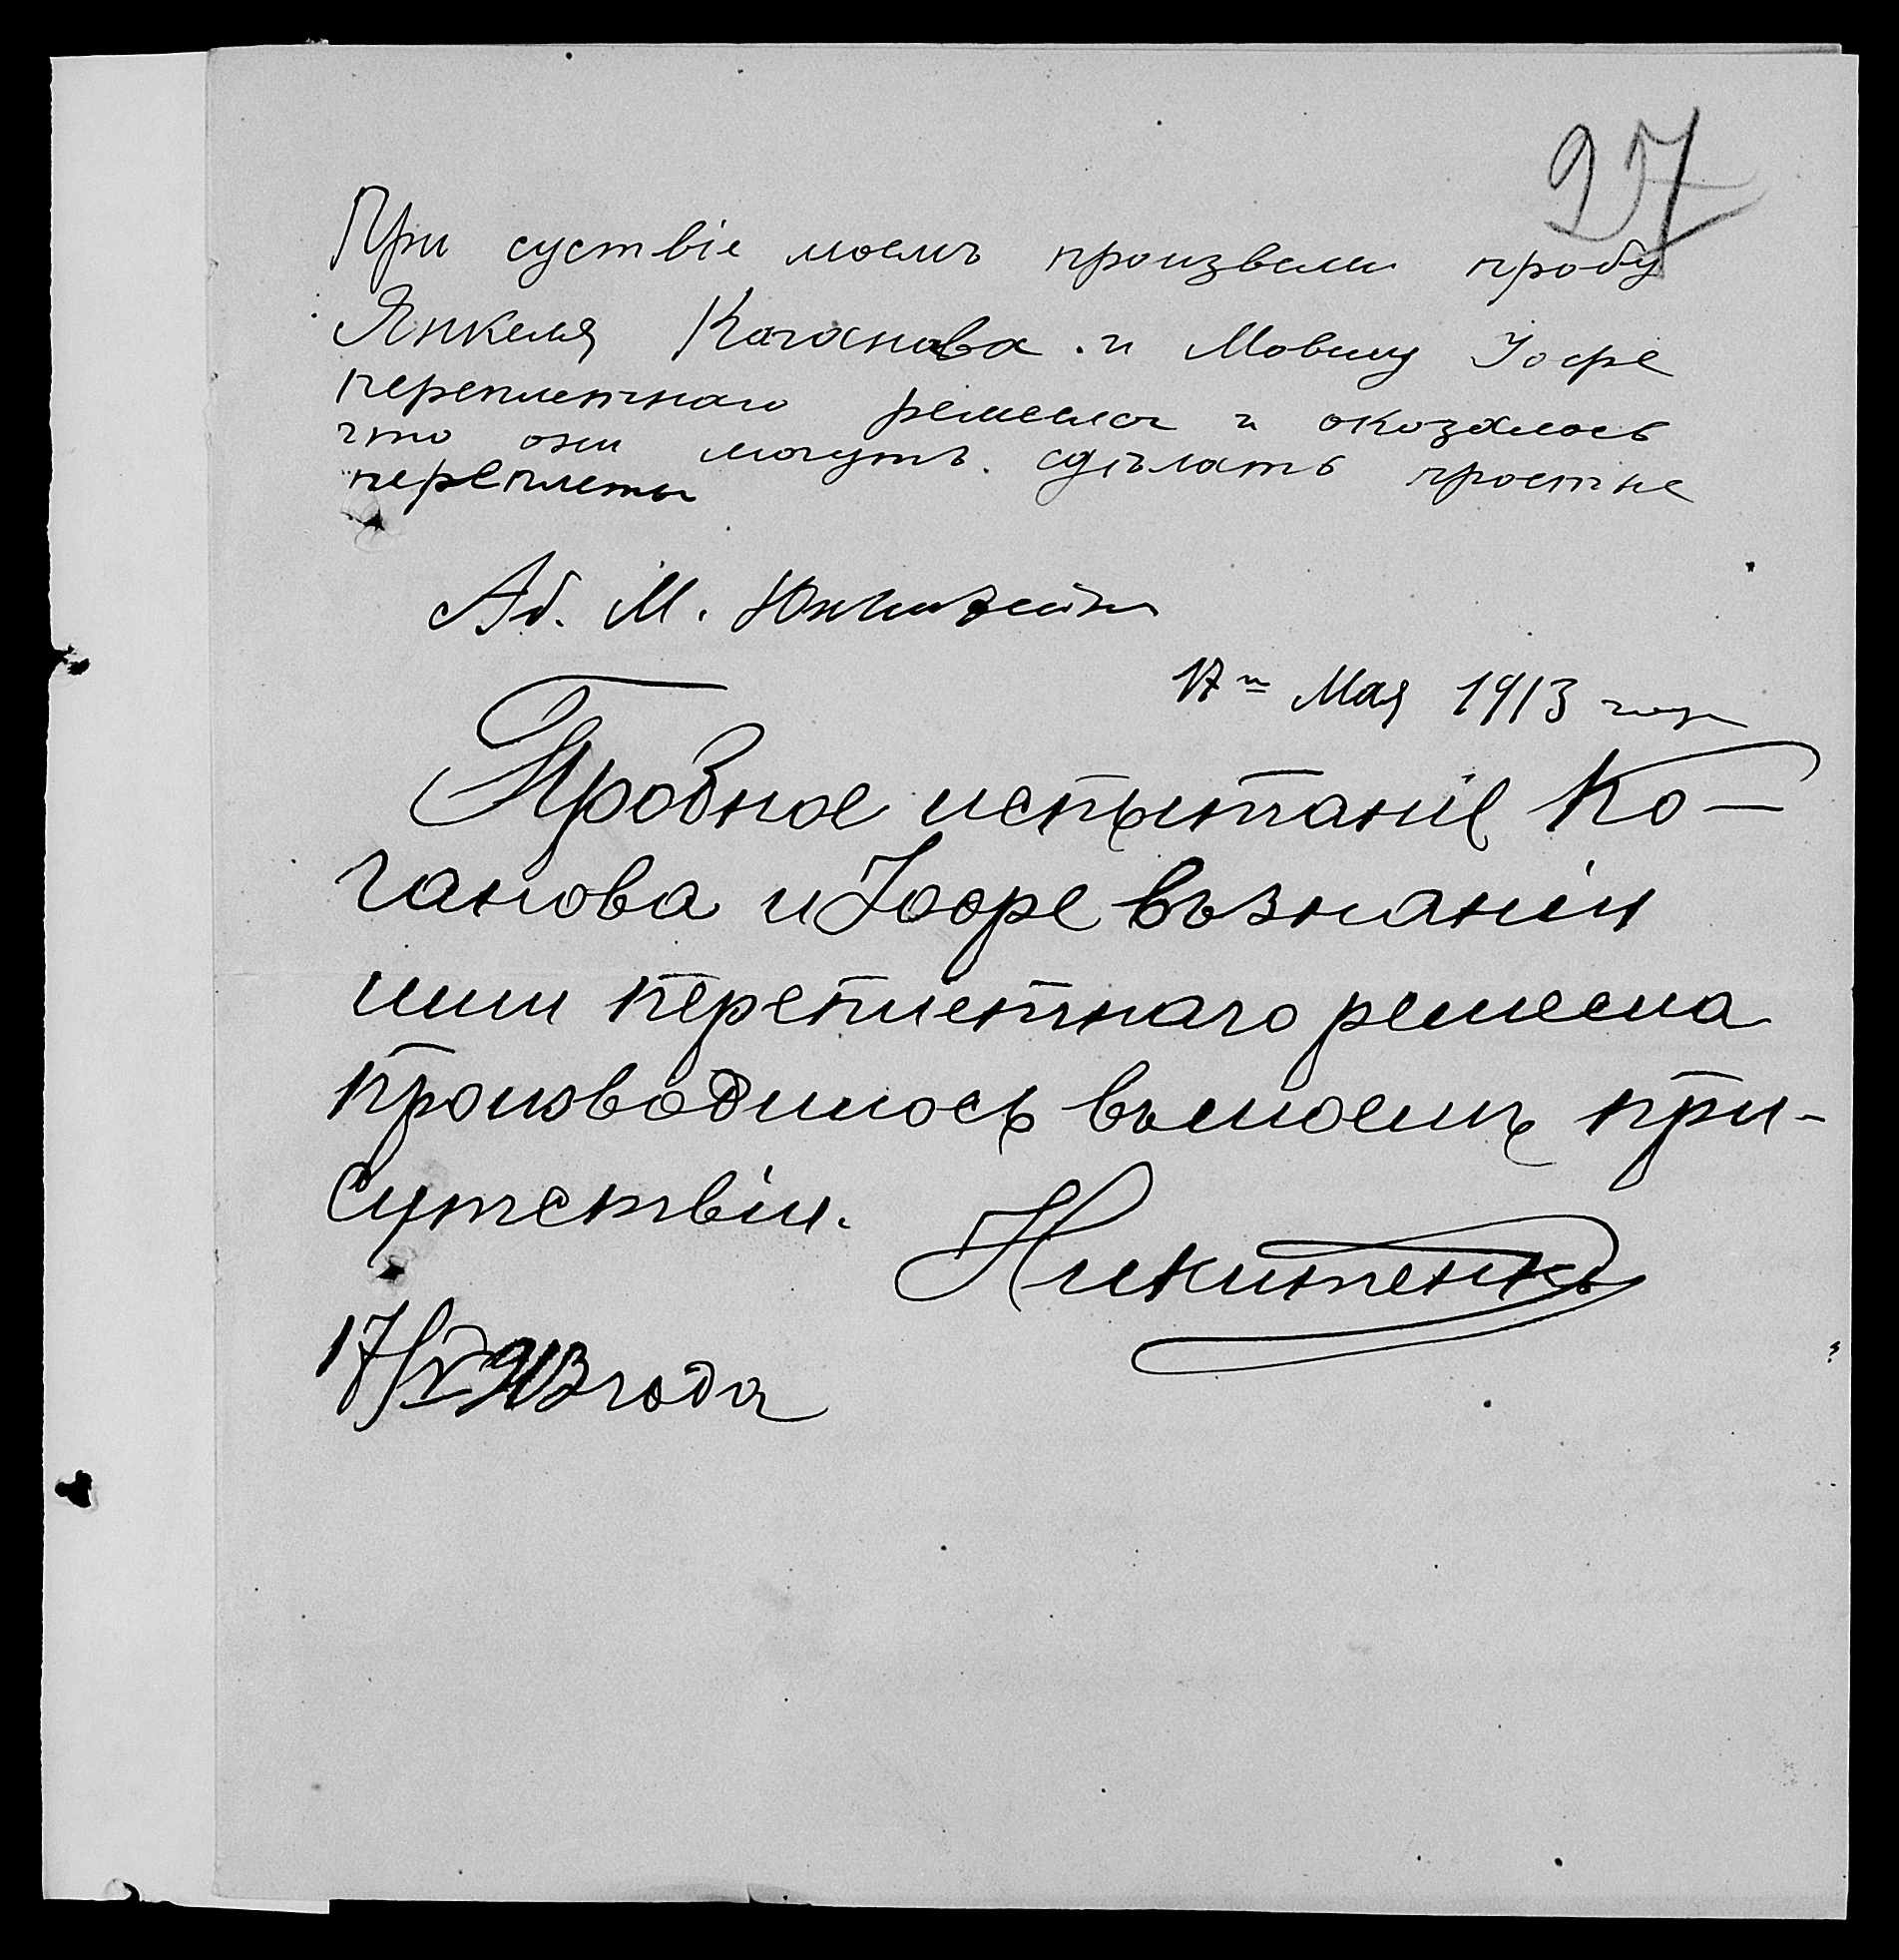 27
При суствіе моемъ произвели пробу
Янкеля Каганова и Мовшу Іофе
переплетнаго ремесла и оказалось
что они могутъ сдѣлать простые
переплеты
Аб. М.
17 го Мая 1913 года
Пробное испытаніе Ко-
ганова и Іоофе въ знаніи
ими переплетнаго ремесла
производилось въ моемъ при-
сутствіи.
Никитенко
17/V 913 года